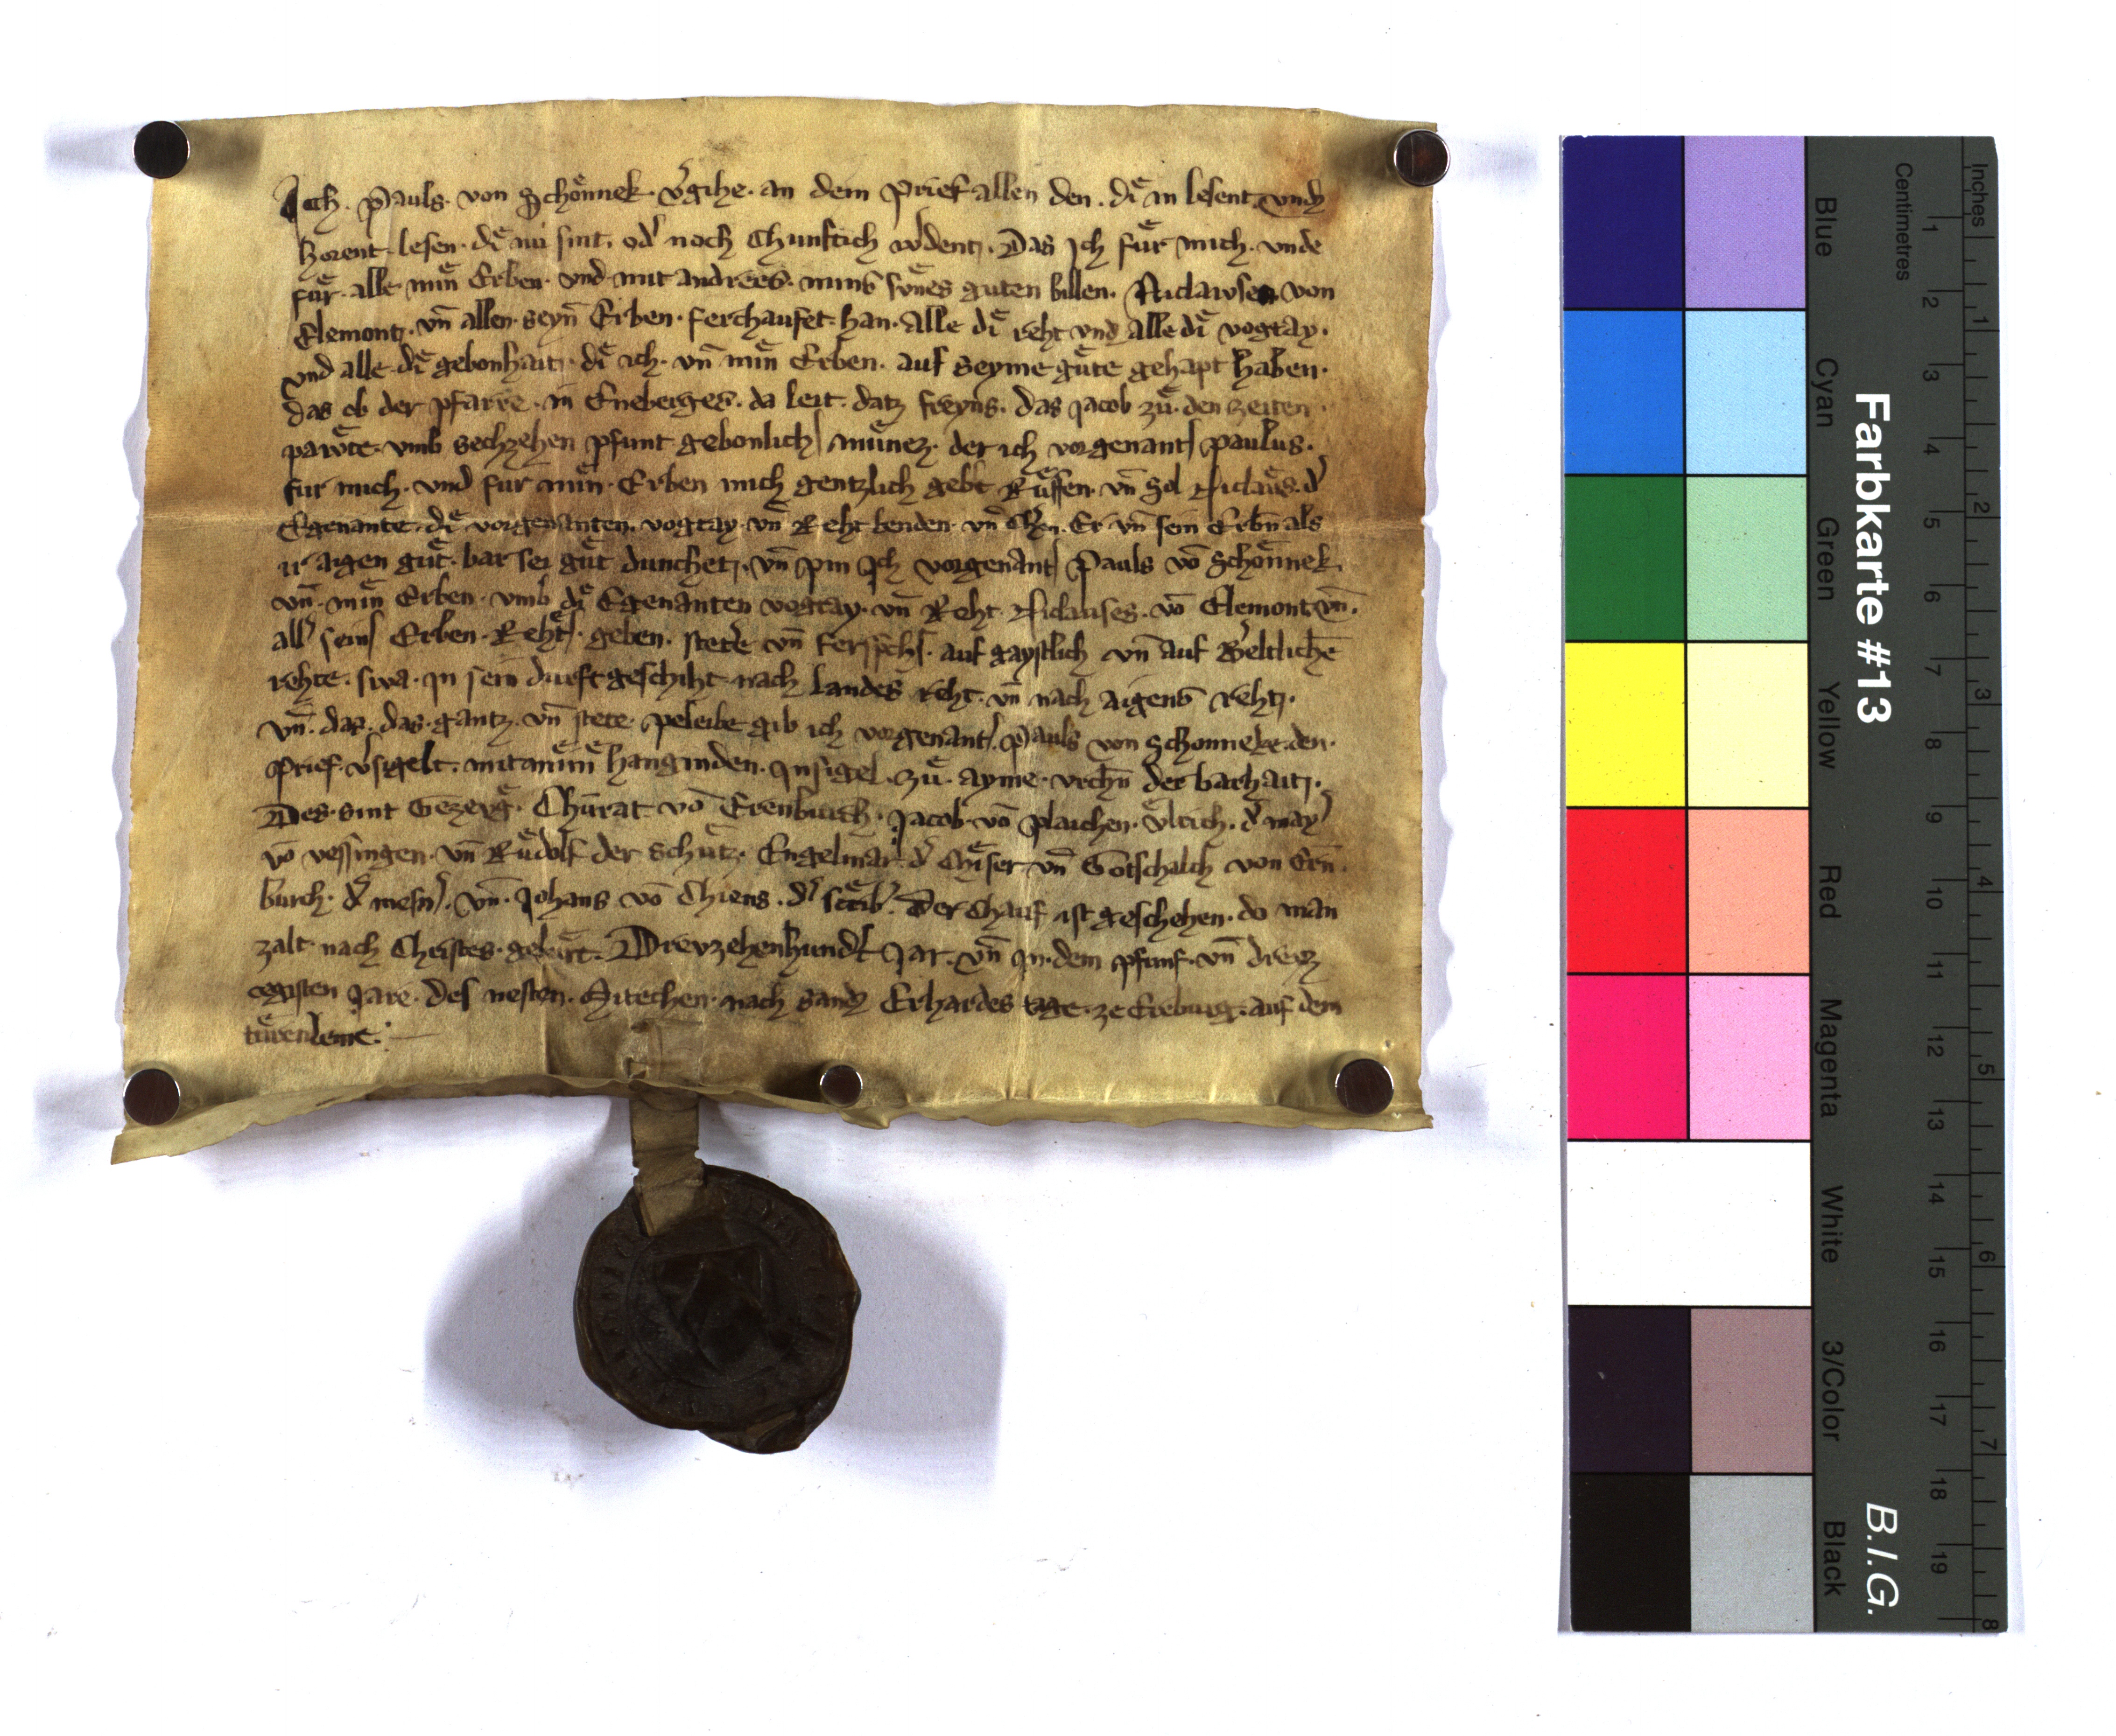 Ich. Pauls. von Schoͤnnek. v͛gihe. an dem Prief allen den. diͤ in lesent. vnd
horent. lesen. diͤ nu sint. od͛ noch Chunftich w͛dent. Das Ich fuͤr mich. vnde
fuͤr. alle miͤn Erben. vnd mit andreͤs. mins suͤnes guten billen. Niclawsen von
Clemont. vn̄ allen. seyn̄ Erben. ferchaufet. han. alle diͤ reht vnd alle diͤ vogtay.
vnd alle. diͤ gebonhait. diͤ ich. vn̄ miͤn Erben. auf seyme guͤte gehapt haben.
das ob der pfarre. in Eneberges. da leit. datz freyns. das Jacob zuͤ. den zeiten.
pawͤte. vmb sechzehen pfunt gebonlich muͤnez. der ich vorgenant paulus.
fur mich. vnd fur miͤn. Erben mich gentzlich gebt Ruͤffen. vn̄ Sol Niclaus. d͛
Egenante. diͤ vorgenanten. vogtay. vn̄ Reht benden. vn̄ Er. vn̄ sein Erbn̄ als
ir aigen guͤt. bar sei guͤt dunchet. vn̄ pin Ich vorgenant Pauls vō Schoͤnnek.
vn̄. miͤn Erben. vmb diͤ Egenanten vogtay. vn̄ Reht. Niclauses. vō Clemont. vn̄.
all͛ sein Erben. Reht. geben. stete vn̄ auf gaystlich vn̄ auf Weltlichē
rehte. swa. in sein durft geschiht. nach Landes reht. vn̄ nach aigens reht.
vn̄. daz. das. gantz. vn̄ stete. peleibe gib ich vorgenant. Pauls von Schonneke. den.
Prief. v͛sigelt. mit miͤm hanginden. Insigel. zuͤ. ayme. vrchn̄ der barhait.
Des. sint Gezeugͤ. Chuͤrat vō Erenburch. Jacob. vō Plaichen. vͤlrich. d͛ may͛
vō vessingen. vn̄ Ruͤdolf der Schuͤtz. Engelmar. d͛ Chiͤser vn̄ Gotschalch von Ern̄
burch. d͛ mesn͛. vn̄. Johans vō Chiens. d͛ scrib͛. Der Chauf ist geschehen. do man
zalt nach Christes. geburt. Drevzehenhund͛t Jar. vn̄ in. dem pfunf. vn̄ dreyz
egisten Jare. des nesten. Mitechen. nach sand Erhardes tage. ze Ereburg. auf dem
tuͤrenleine.
Farbkarte #13
B.I.G.
Centimetres
Inches
Blue
Cyan
Green
Yellow
Red
Magenta
White
3/Color
Black
1 2 3 4 5 6 7 8 9 10 11 12 13 14 15 16 17 18 19
1 2 3 4 5 6 7 8